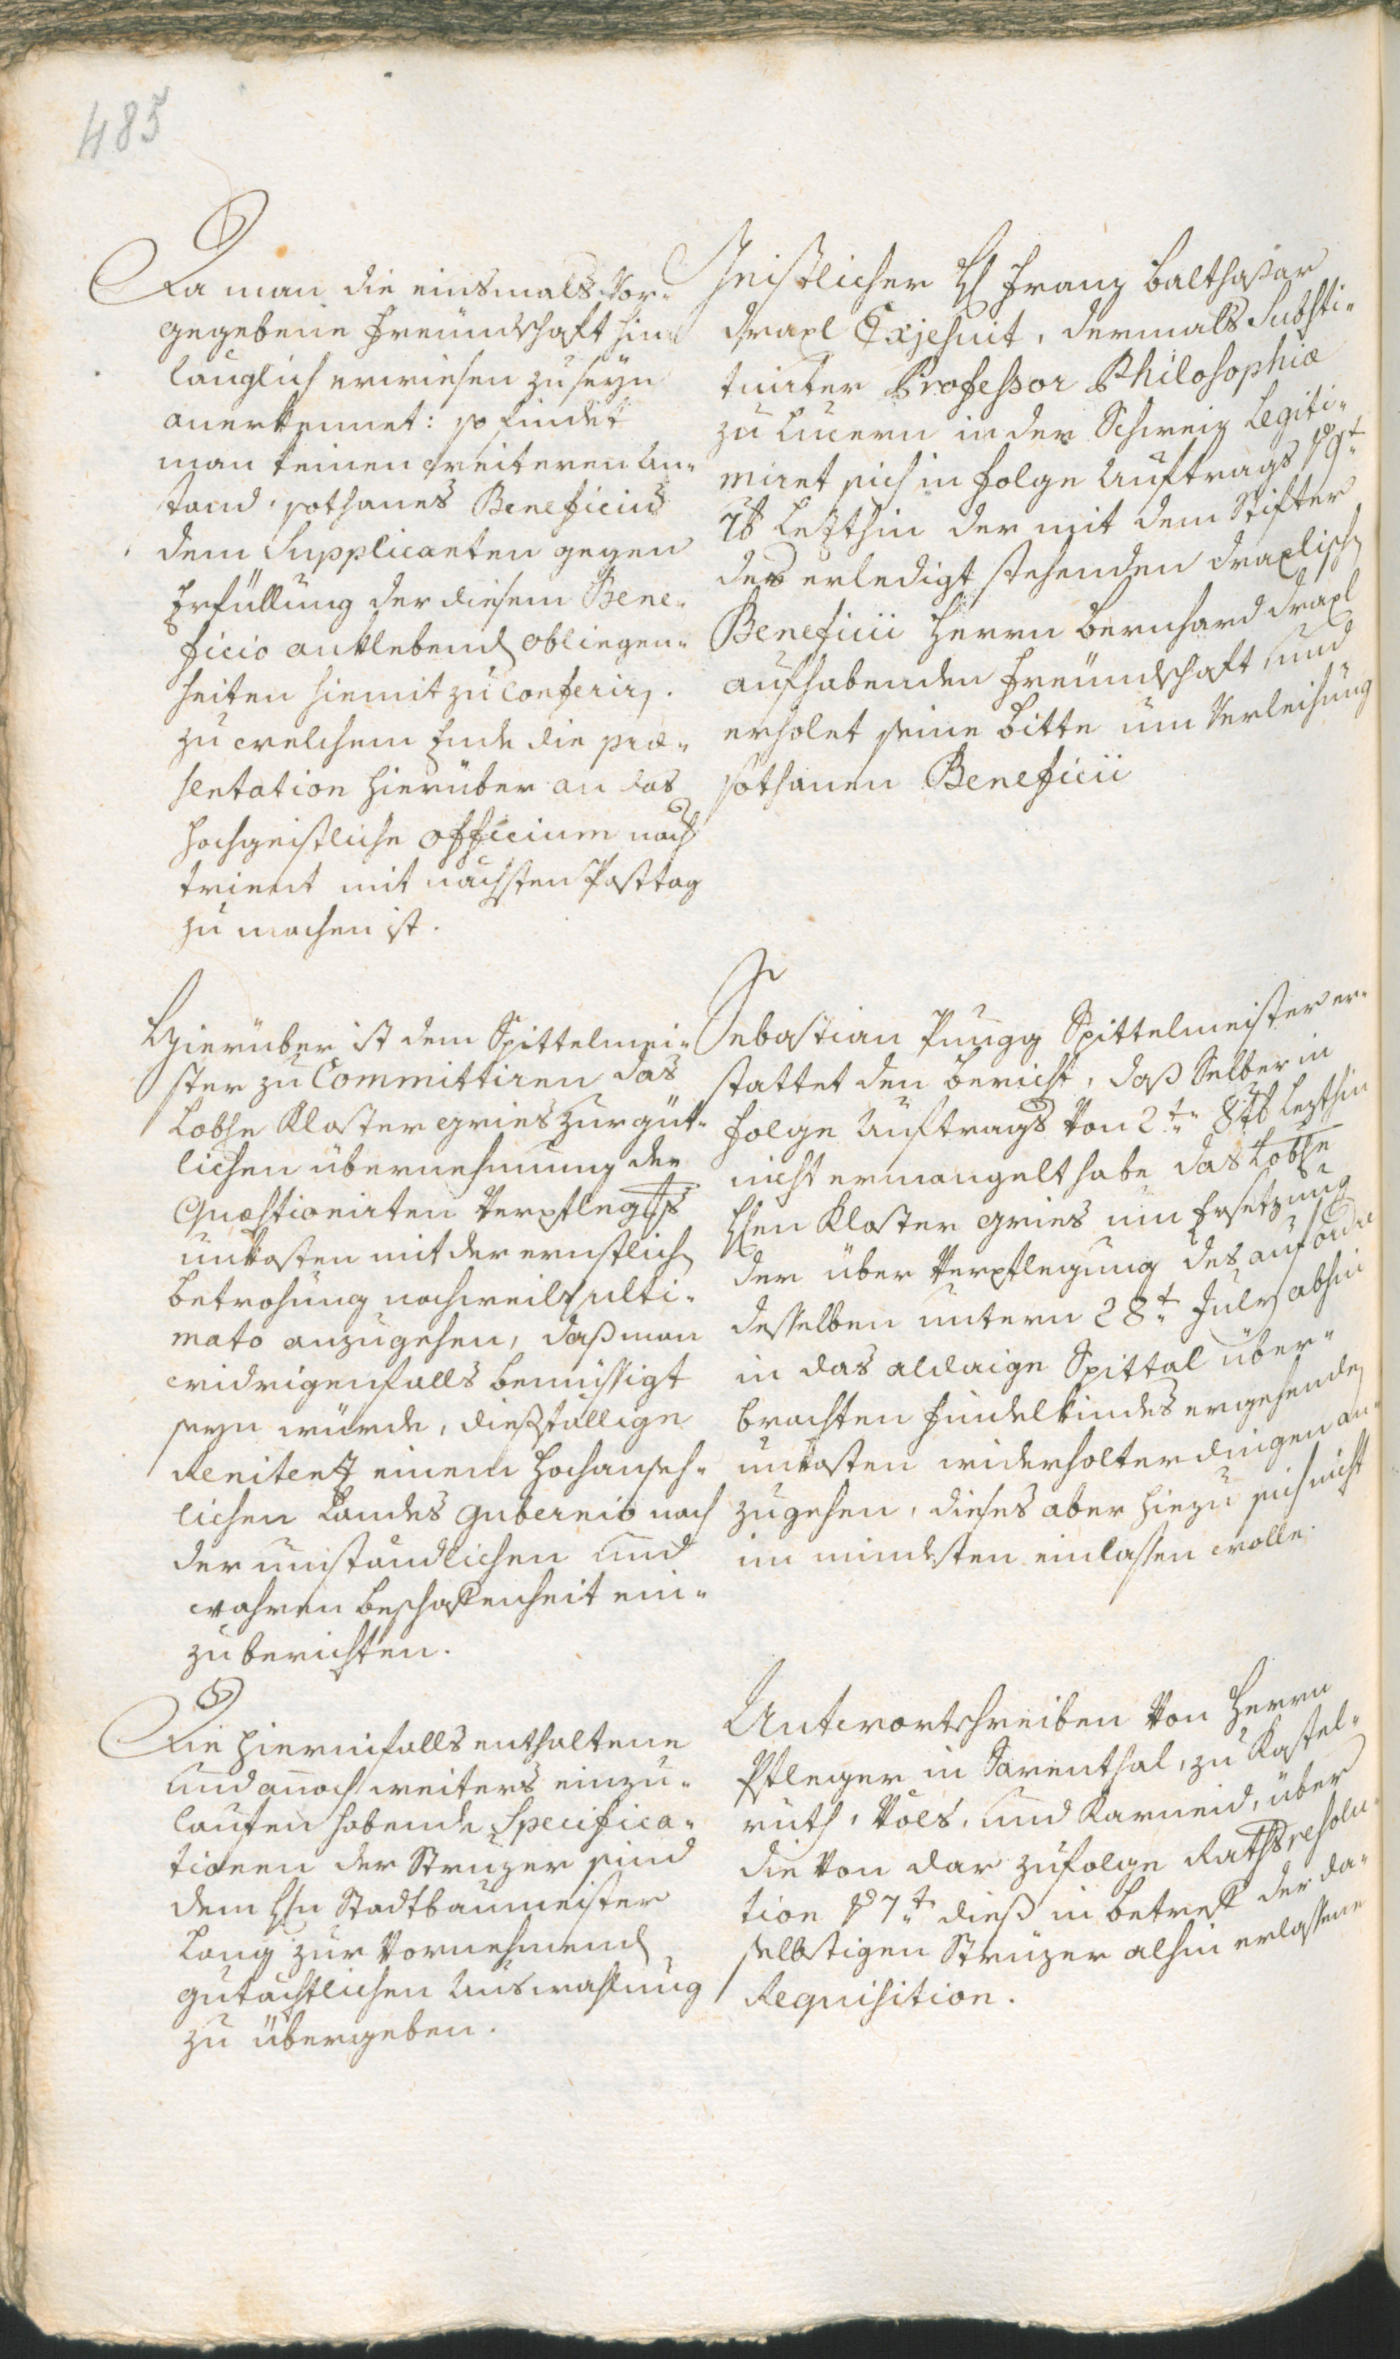 485
Da man die einsmals Vor-
gegebene Freündschaft hin-
länglich erwiesen zu seyn
anerkennet: so findet
man keinen weiteren An-
stand sothanes Beneficium
dem Supplicanten gegen
Erfüllung der diesem Bene-
ficio anklebenden obliegen-
heiten hiemit zu Conferirn.
zu welchem Ende die præ-
sentation hierüber an das
Hochgeistliche officium nach
trient mit nächsten Posttag
zu machen ist.
Geistlicher H: Franz Balthasar
draxl Exjesuit, dermals Substi-
tuirter Professor Philosophiæ
zu Lucern in der Schweiz Legiti-
miret sich in folge Auftrags 19t
7b Letzthin der mit dem Stifter
des erledigt stehenden draxlischen
Beneficii Herrn Bernhard draxl
aufhabenden Freündschaft und
erholet seine Bitte um Verleihung
sothanen Beneficii
Hierüber ist dem Spittelmei-
ster zu Committiren das
Lobhe Kloster gries zur güt-
lichen übernehmung der
Quæstionirten Verpflegungs
unkosten mit der ernstlichen
betrohung nochweils ulti-
mato anzugehen, daß man
widrigenfalls bemüssigt
seyn würde, dießfällige
Renitenz einem Hochanseh-
lichen Landes Gubernio nach
der umständlichen und
wahren beschaffenheit ein-
zuberichten.
Sebastian Pungg Spittelmeister er-
stattet den bericht, daß Selber in
folge Auftrags Von 2ten 8tb Letzthin
nicht ermangelt habe das Lobhe
Hhen Kloster gries um Ersetzung
der über Verpflegung des auf ordre
desselben untern 28t July abhin
in das aldaige Spittal über-
brachten Findelkindes ergehenden
unkosten widerholter dingen an-
zugehen, dieses aber hiezu sich nicht
im mindesten einlassen wolle.
Die Hiernifalls enthaltene
und annoch weiters einzu-
laufen habende Specifica-
tionen der Strüzer sind
dem Hhn Stadtbaumeister
Lang zur Vornehmend
gutächtlichen Auswahlung
zu übergeben.
Antwortschreiben Von Herrn
Pfleger in Sarenthal, zu Kastel-
ruth, Vöels, und Karneid, über
die Von dar zufolge Rathsresolu-
tion 17t dieß in betreff der da-
selbstigen Strüzer alhin erlassene
Requisition.